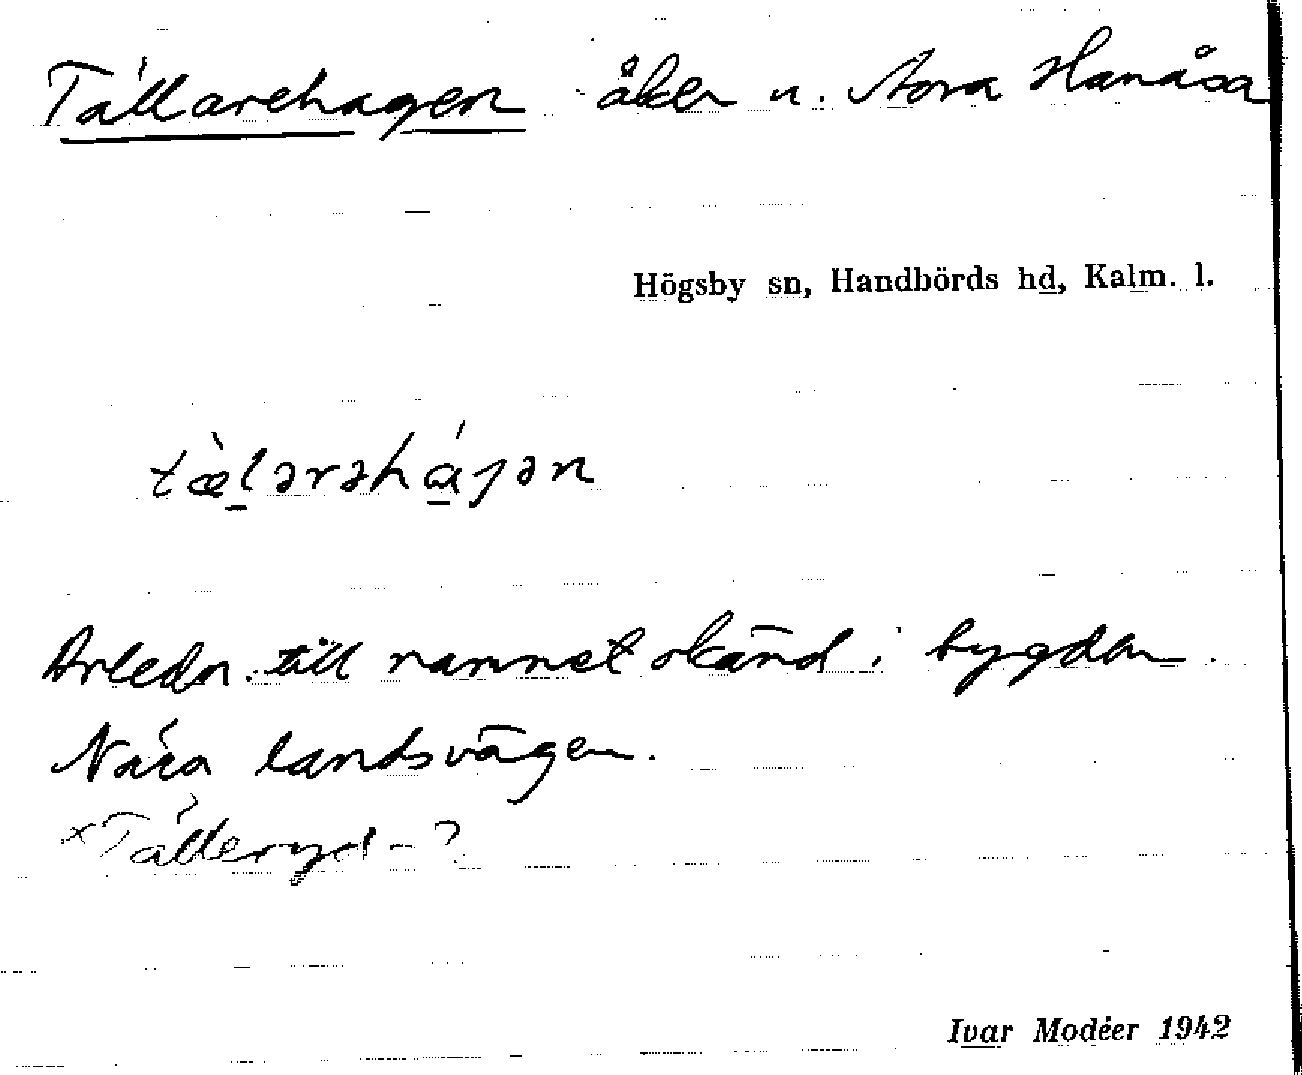 Tällarehagen åker u. Stora Hanåsa
Högsby sn, Handbörds hd, Kalm. l.
tæ̀lərəhájən
Anledn. till namnet okänd i bygden.
Nära landsvägen.
×Tälleryd-?
Ivar Modéer 1942